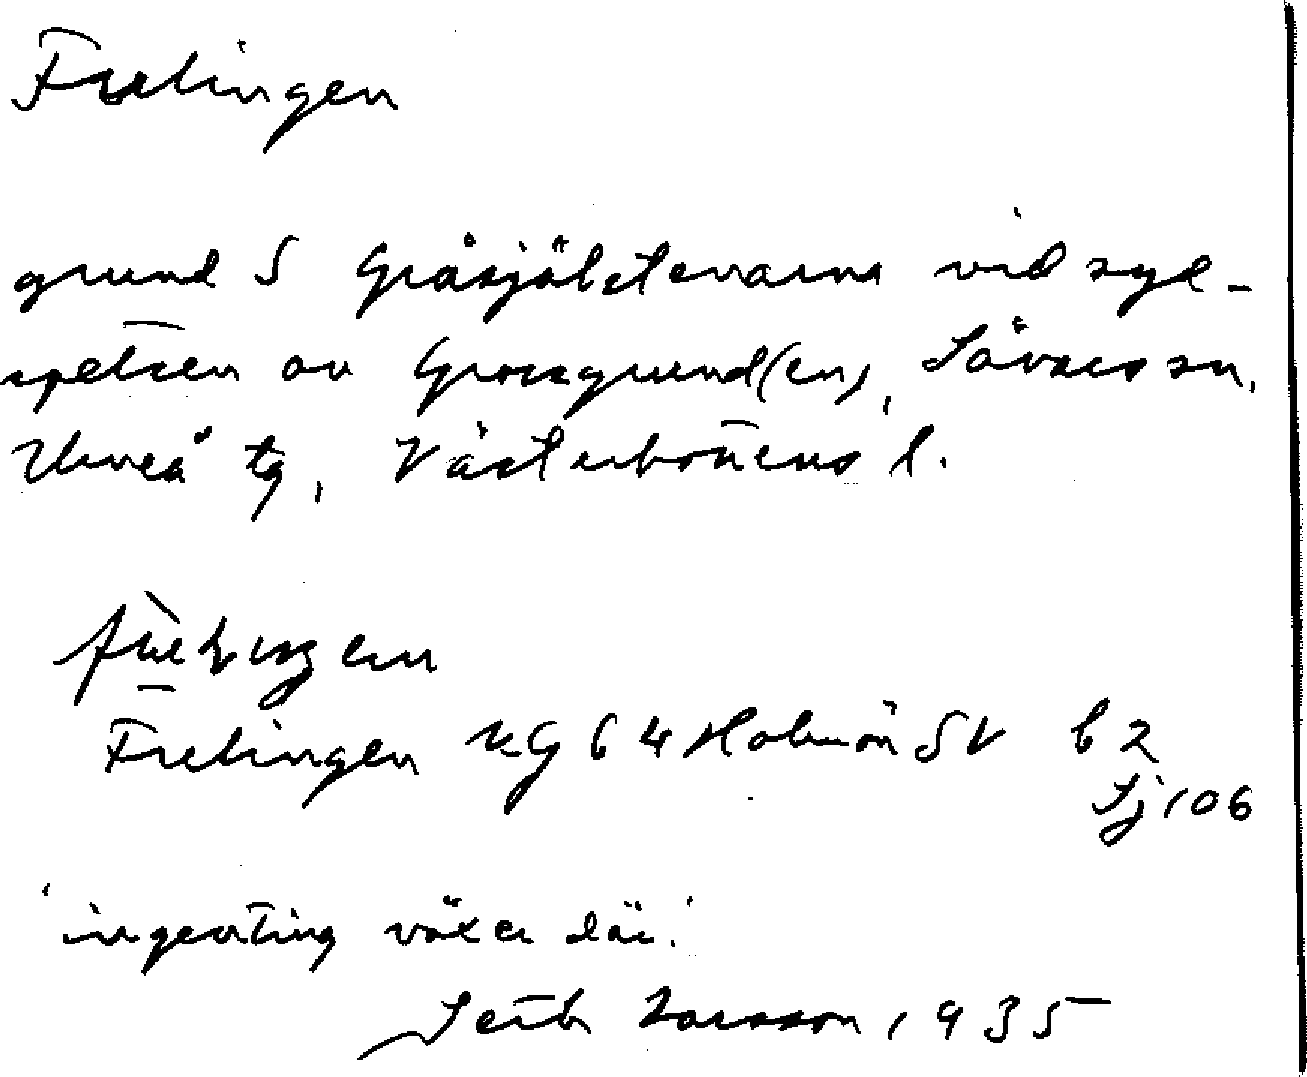 Frelingen
grund S Gråsjälstenarna vid syd-
spetsen av Grossgrund(en), Sävars sn,
Umeå tg, Västerbottens l.
Frelingen KG 64 Holmön SV b2
Sj 106
'ingenting växer där.'
Larsson, 1935